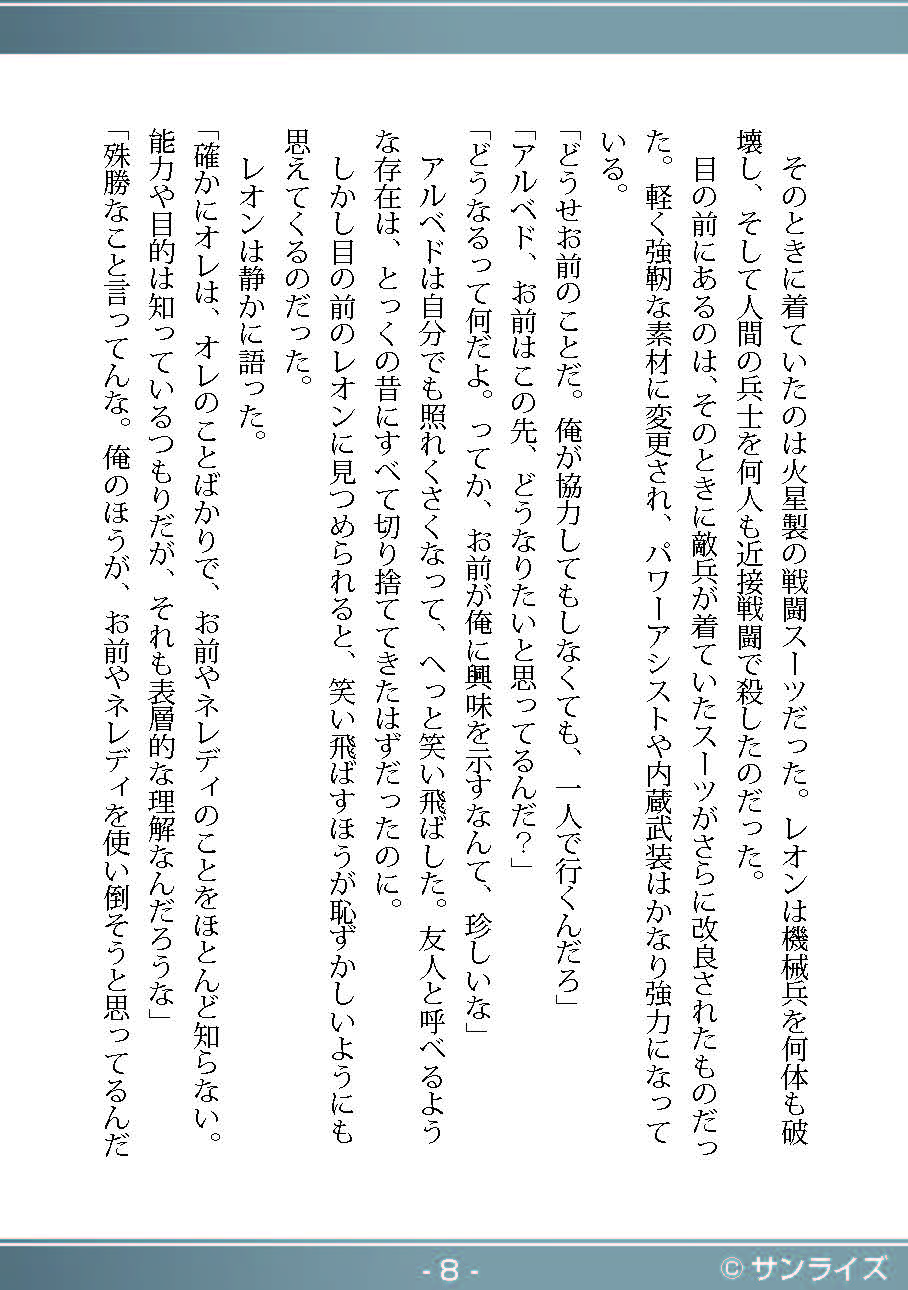 そのときに着ていたのは火星製の戦闘スーツだった。レオンは機械兵を何体も破
壊し、そして人間の兵士を何人も近接戦闘で殺したのだった。
　目の前にあるのは、そのときに敵兵が着ていたスーツがさらに改良されたものだっ
た。軽く強靭な素材に変更され、パワーアシストや内蔵武装はかなり強力になって
いる。
「どうせお前のことだ。俺が協力してもしなくても、一人で行くんだろ」
「アルベド、お前はこの先、どうなりたいと思ってるんだ？」
「どうなるって何だよ。ってか、お前が俺に興味を示すなんて、珍しいな」
　アルベドは自分でも照れくさくなって、へっと笑い飛ばした。友人と呼べるよう
な存在は、とっくの昔にすべて切り捨ててきたはずだったのに。
　しかし目の前のレオンに見つめられると、笑い飛ばすほうが恥ずかしいようにも
思えてくるのだった。
　レオンは静かに語った。
「確かにオレは、オレのことばかりで、お前やネレディのことをほとんど知らない。
能力や目的は知っているつもりだが、それも表層的な理解なんだろうな」
「殊勝なこと言ってんな。俺のほうが、お前やネレディを使い倒そうと思ってるんだ
- 8 -
© サンライズ